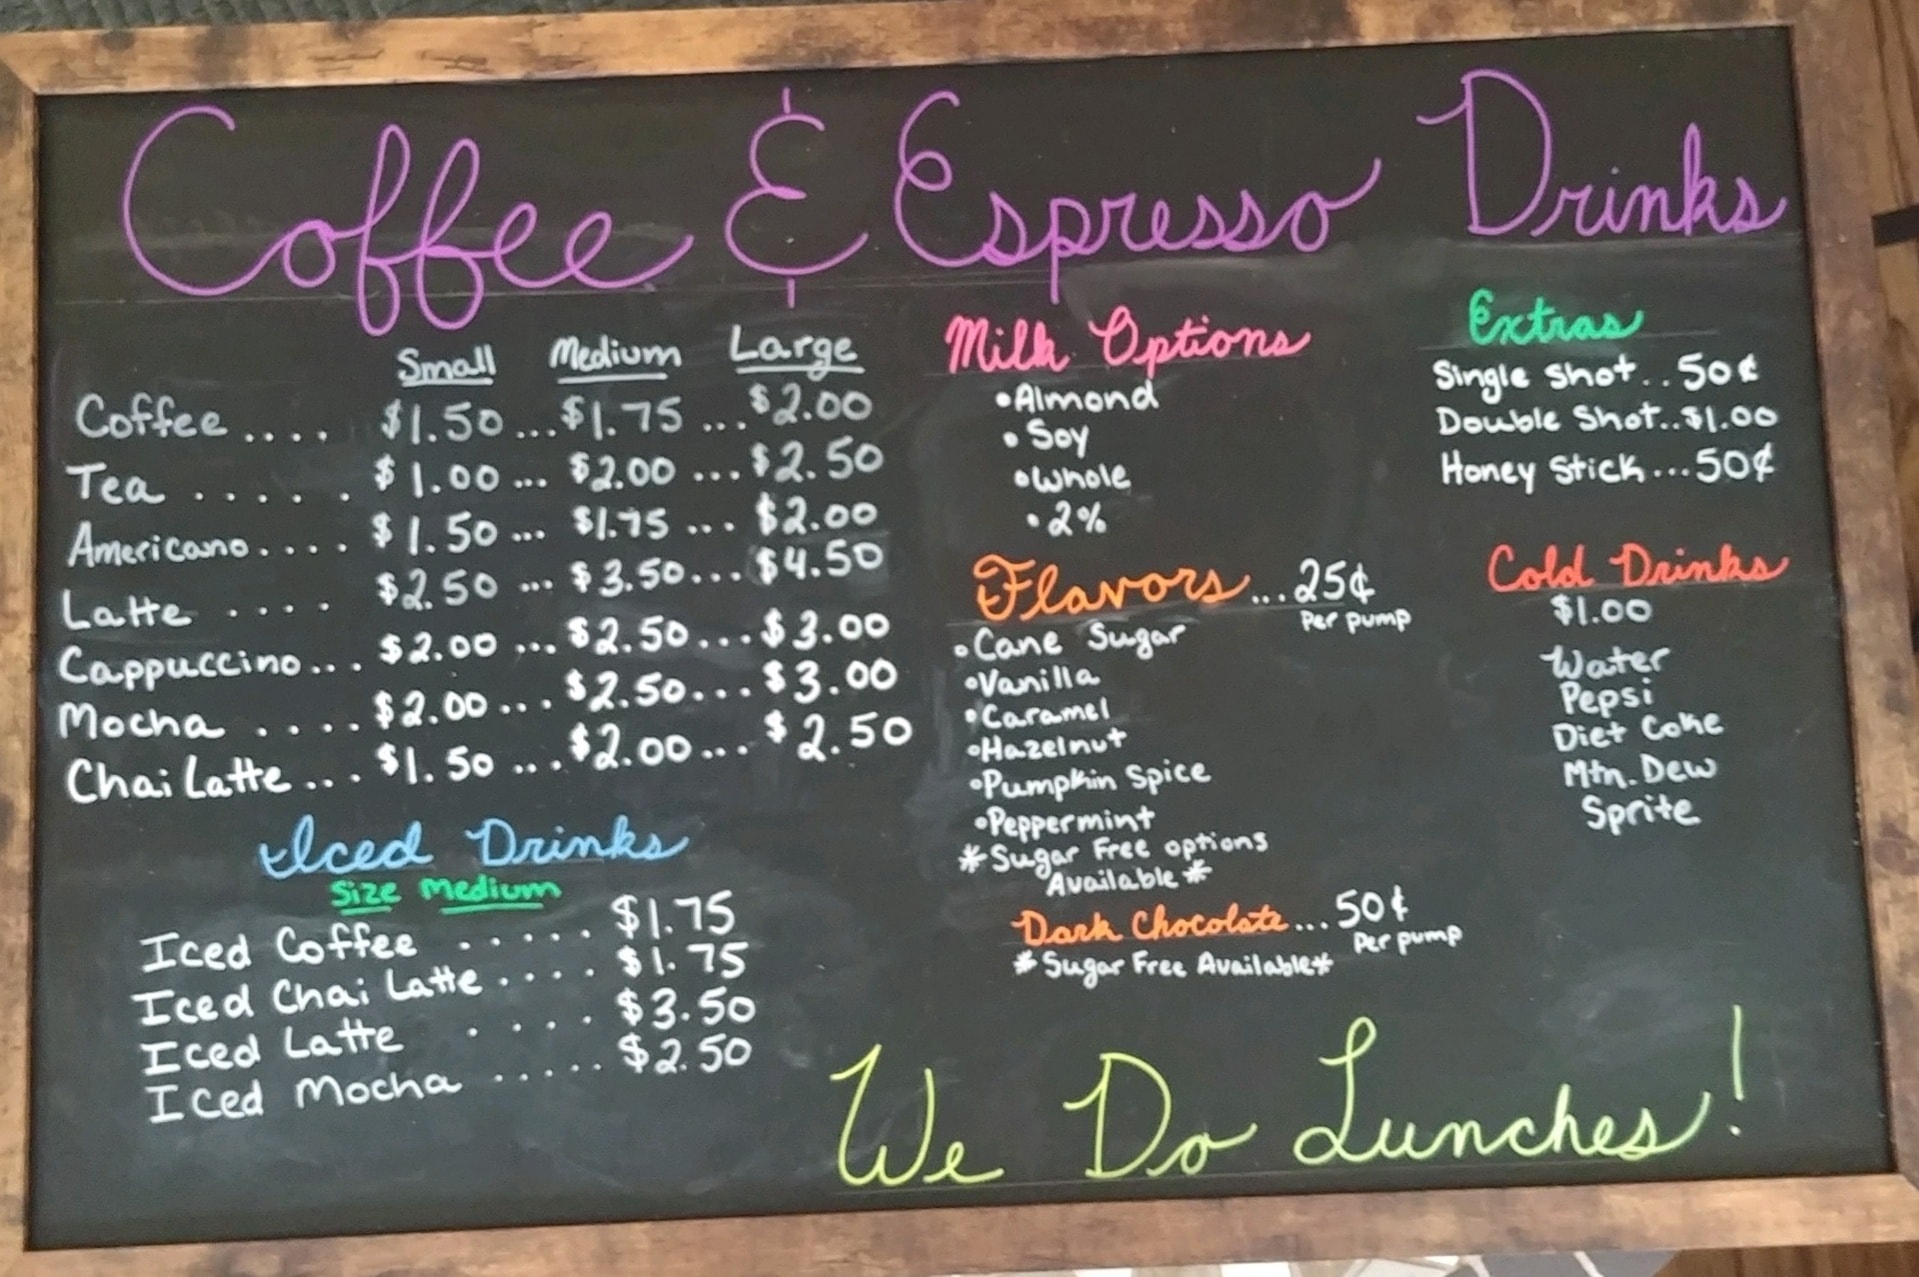 Coffee & Espresso Drinks
Small Medium Large
Coffee .... $1.50 ... $1.75 ... $2.00
Tea ..... $1.00 ... $2.00 ... $2.50
Americano .... $1.50 ... $1.75 ... $2.00
Latte .... $2.50 ... $3.50 ... $4.50
Cappuccino ... $2.00 ... $2.50 ... $3.00
Mocha .... $2.00 ... $2.50 ... $3.00
Chai Latte ... $1.50 ... $2.00 ... $2.50
Iced Drinks
Size Medium
Iced Coffee ..... $1.75
Iced Chai Latte .... $1.75
Iced Latte .... $3.50
Iced Mocha ..... $2.50
Milk Options
•Almond
•Soy
•Whole
•2%
Flavors...25¢
Per pump
•Cane Sugar
•Vanilla
•Caramel
•Hazelnut
•Pumpkin Spice
•Peppermint
*Sugar Free options
Available*
Dark Chocolate...50¢
Per pump
*Sugar Free Available*
Extras
Single Shot..50¢
Double Shot..$1.00
Honey Stick...50¢
Cold Drinks
$1.00
Water
Pepsi
Diet Coke
Mtn. Dew
Sprite
We Do Lunches!